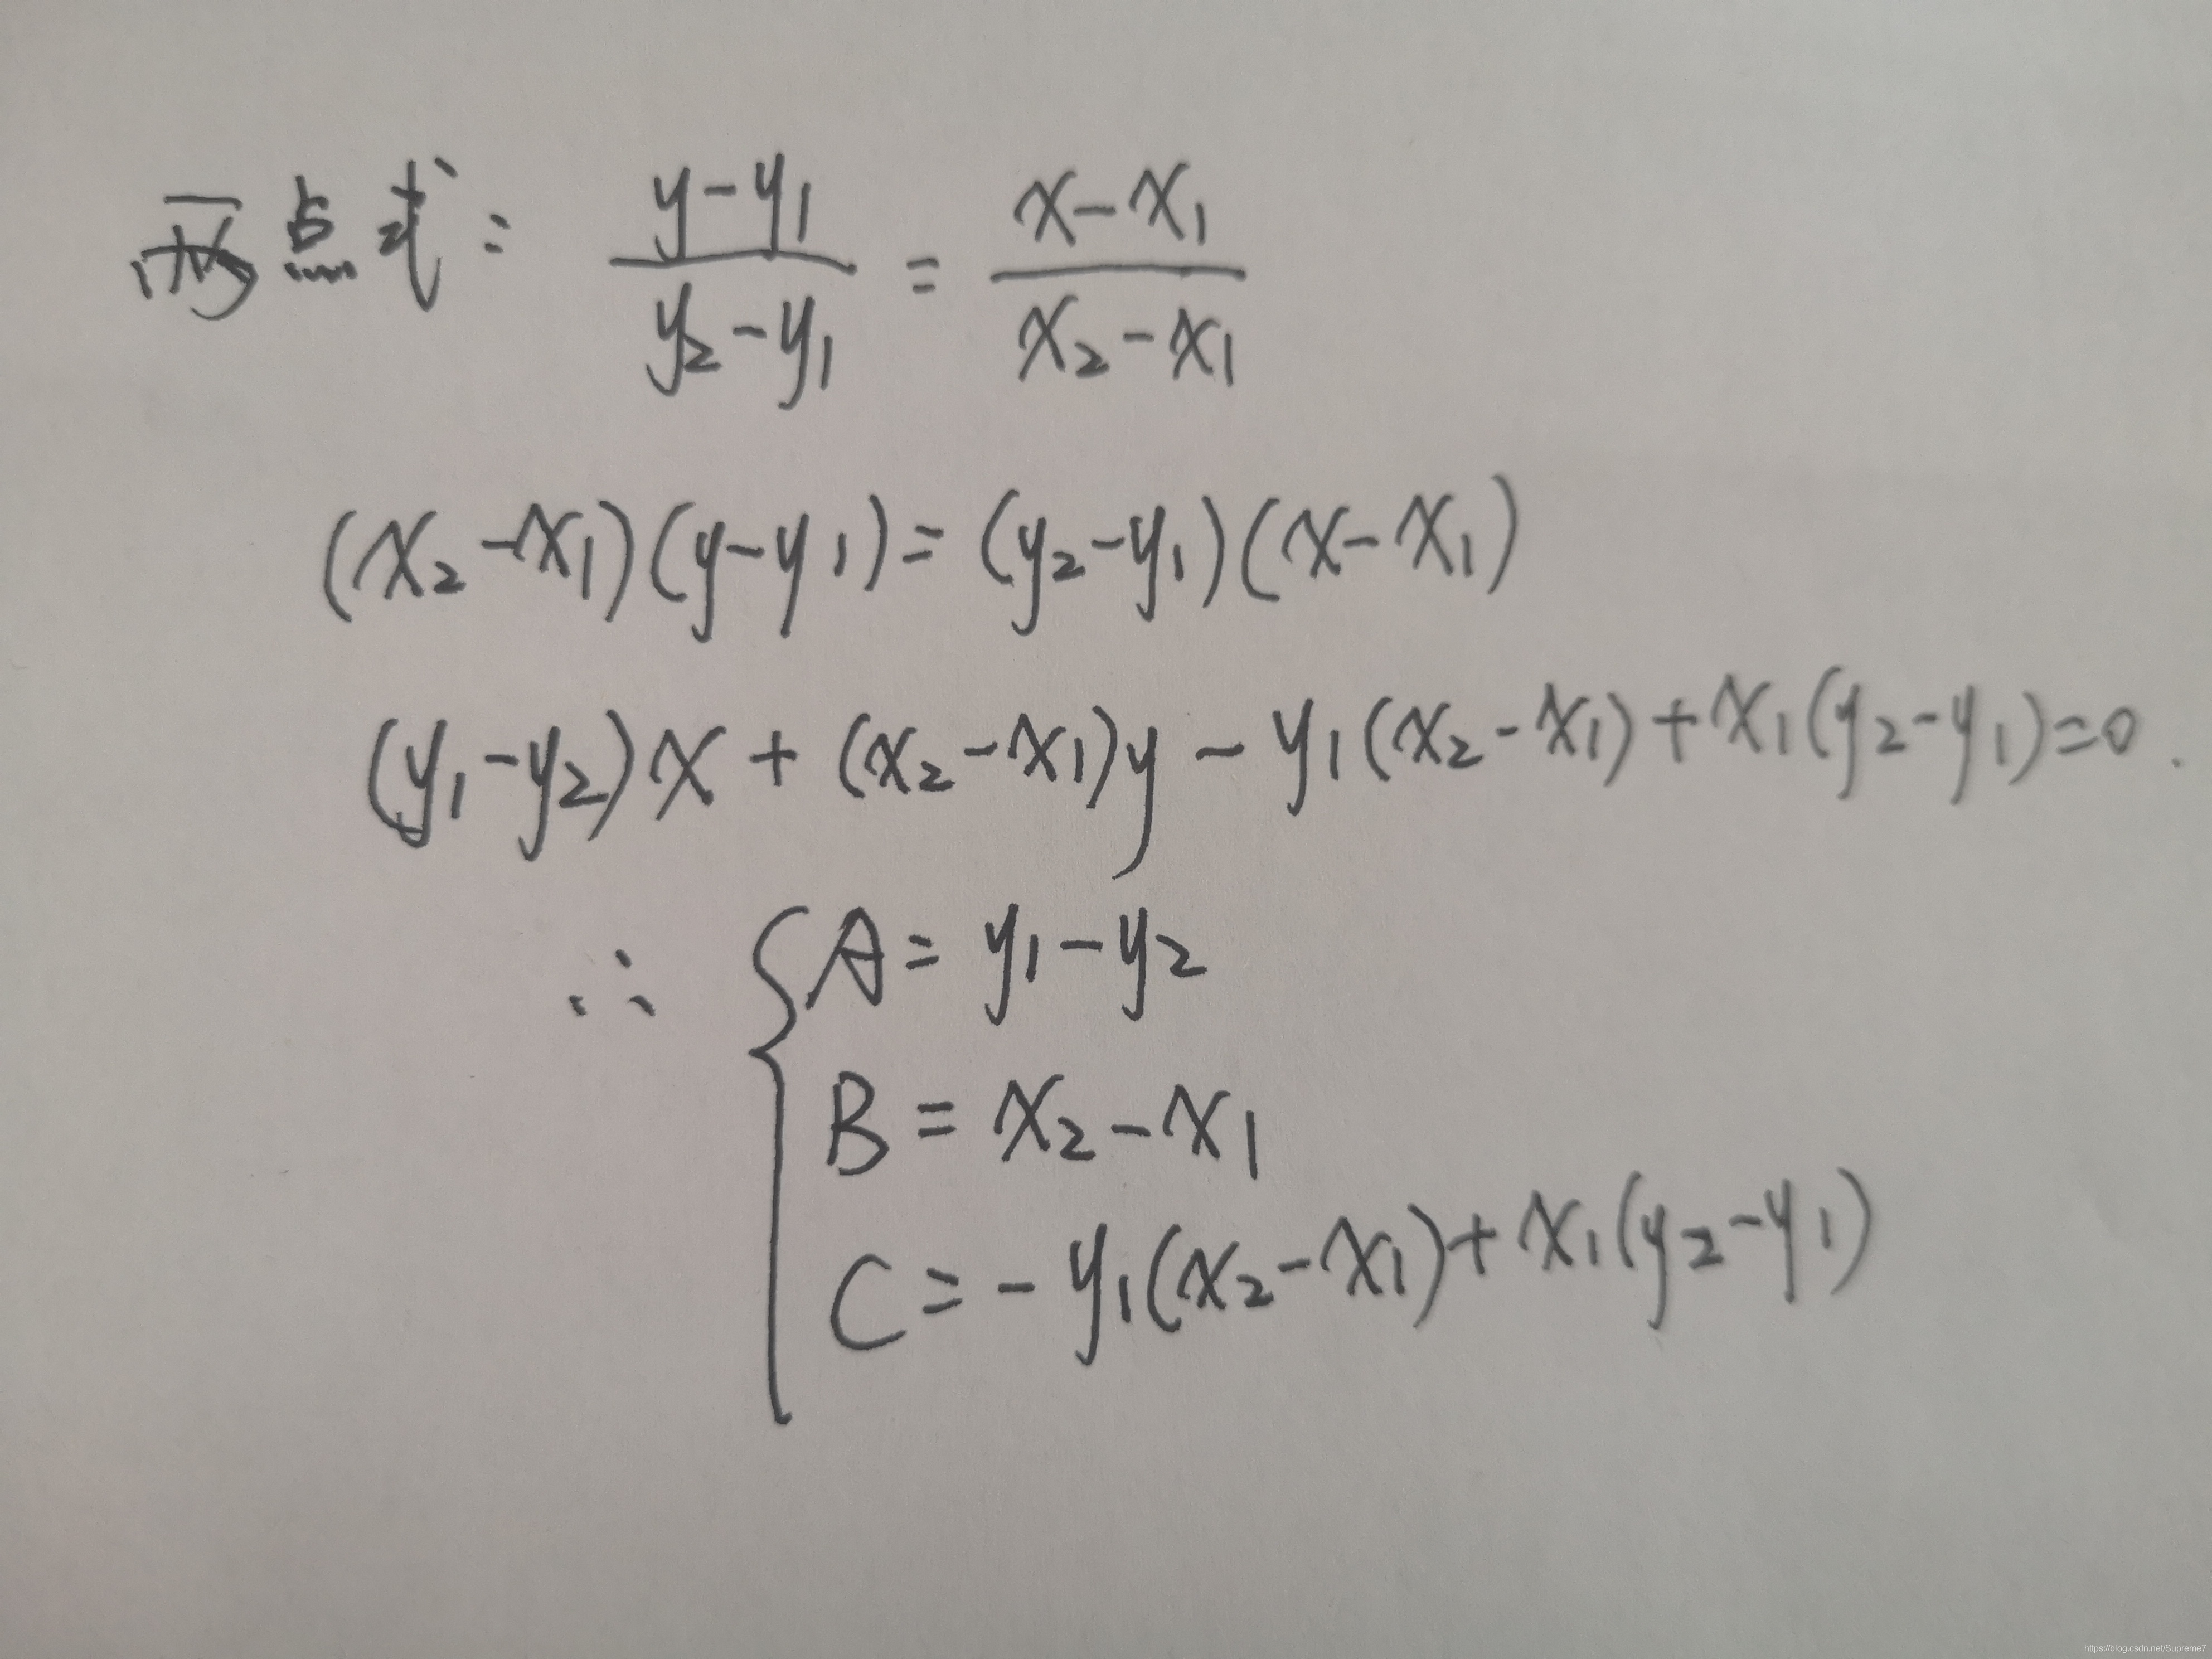 两点式: \frac{y-y_1}{y_2-y_1} = \frac{x-x_1}{x_2-x_1}
(x_2-x_1)(y-y_1)=(y_2-y_1)(x-x_1)
(y_1-y_2)x+(x_2-x_1)y-y_1(x_2-x_1)+x_1(y_2-y_1)=0.
∴ { A=y_1-y_2
B=x_2-x_1
C=-y_1(x_2-x_1)+x_1(y_2-y_1)
https://blog.csdn.net/Supreme7